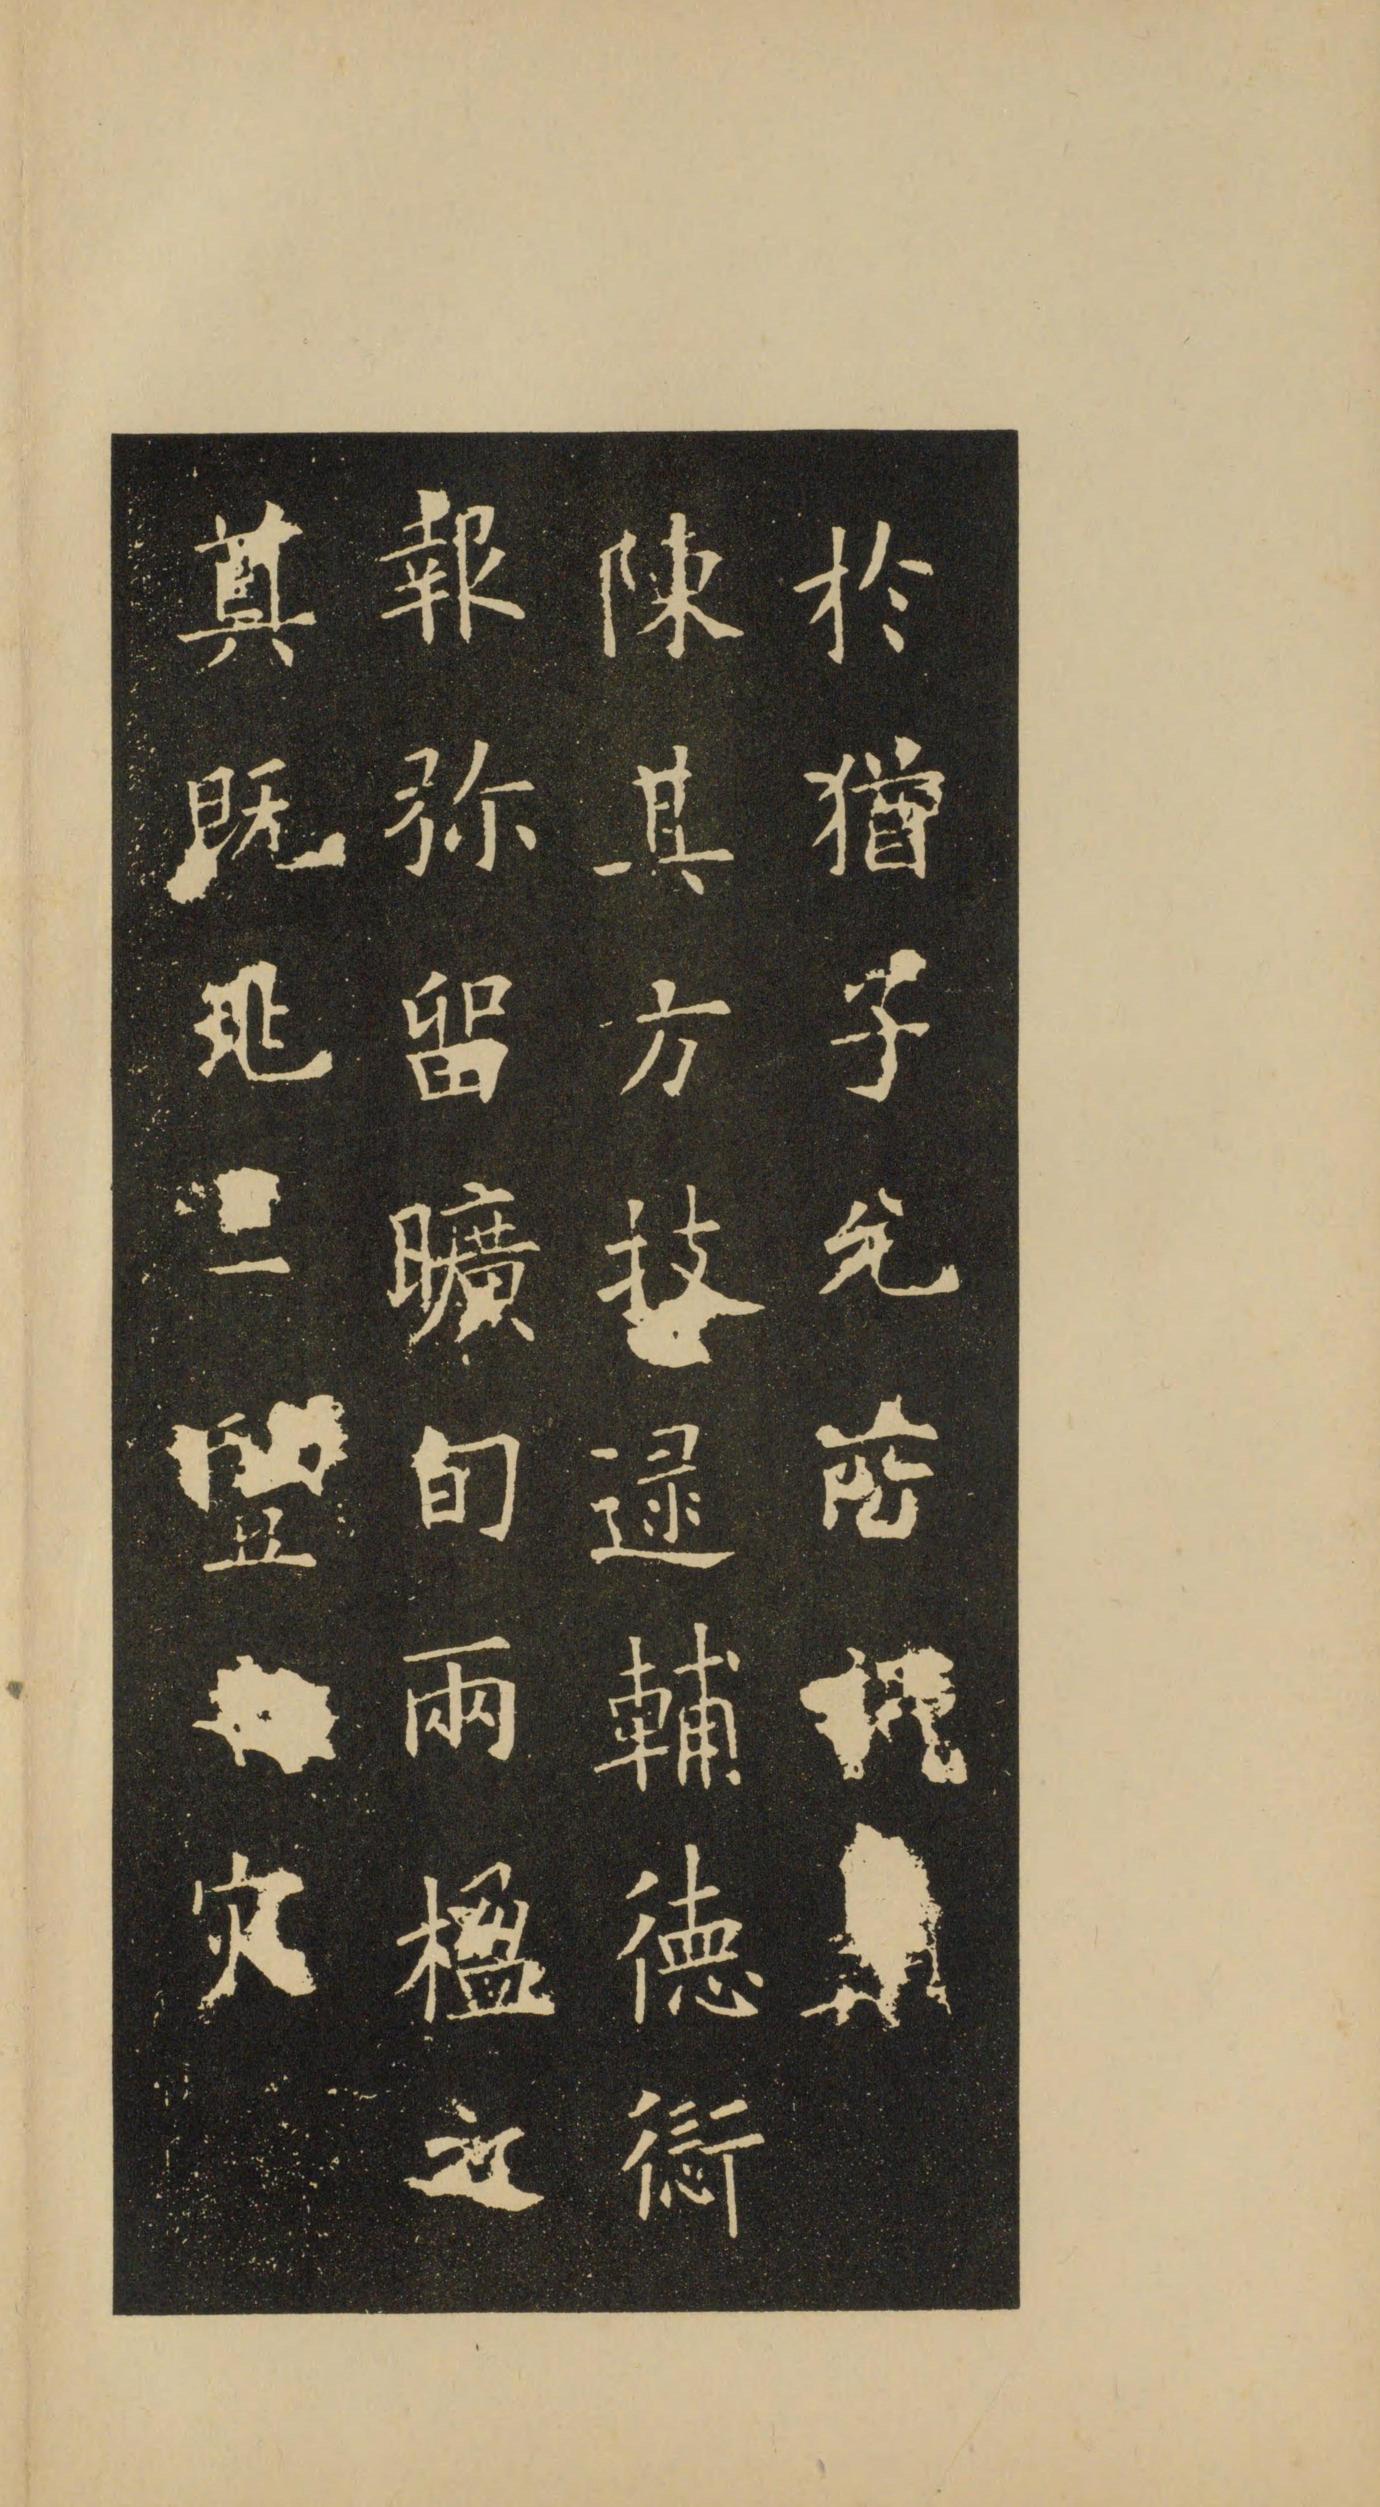 於猶子
陳其方技逯輔德愆
報弥留曠旬兩楹之
奠既兆二豎灾